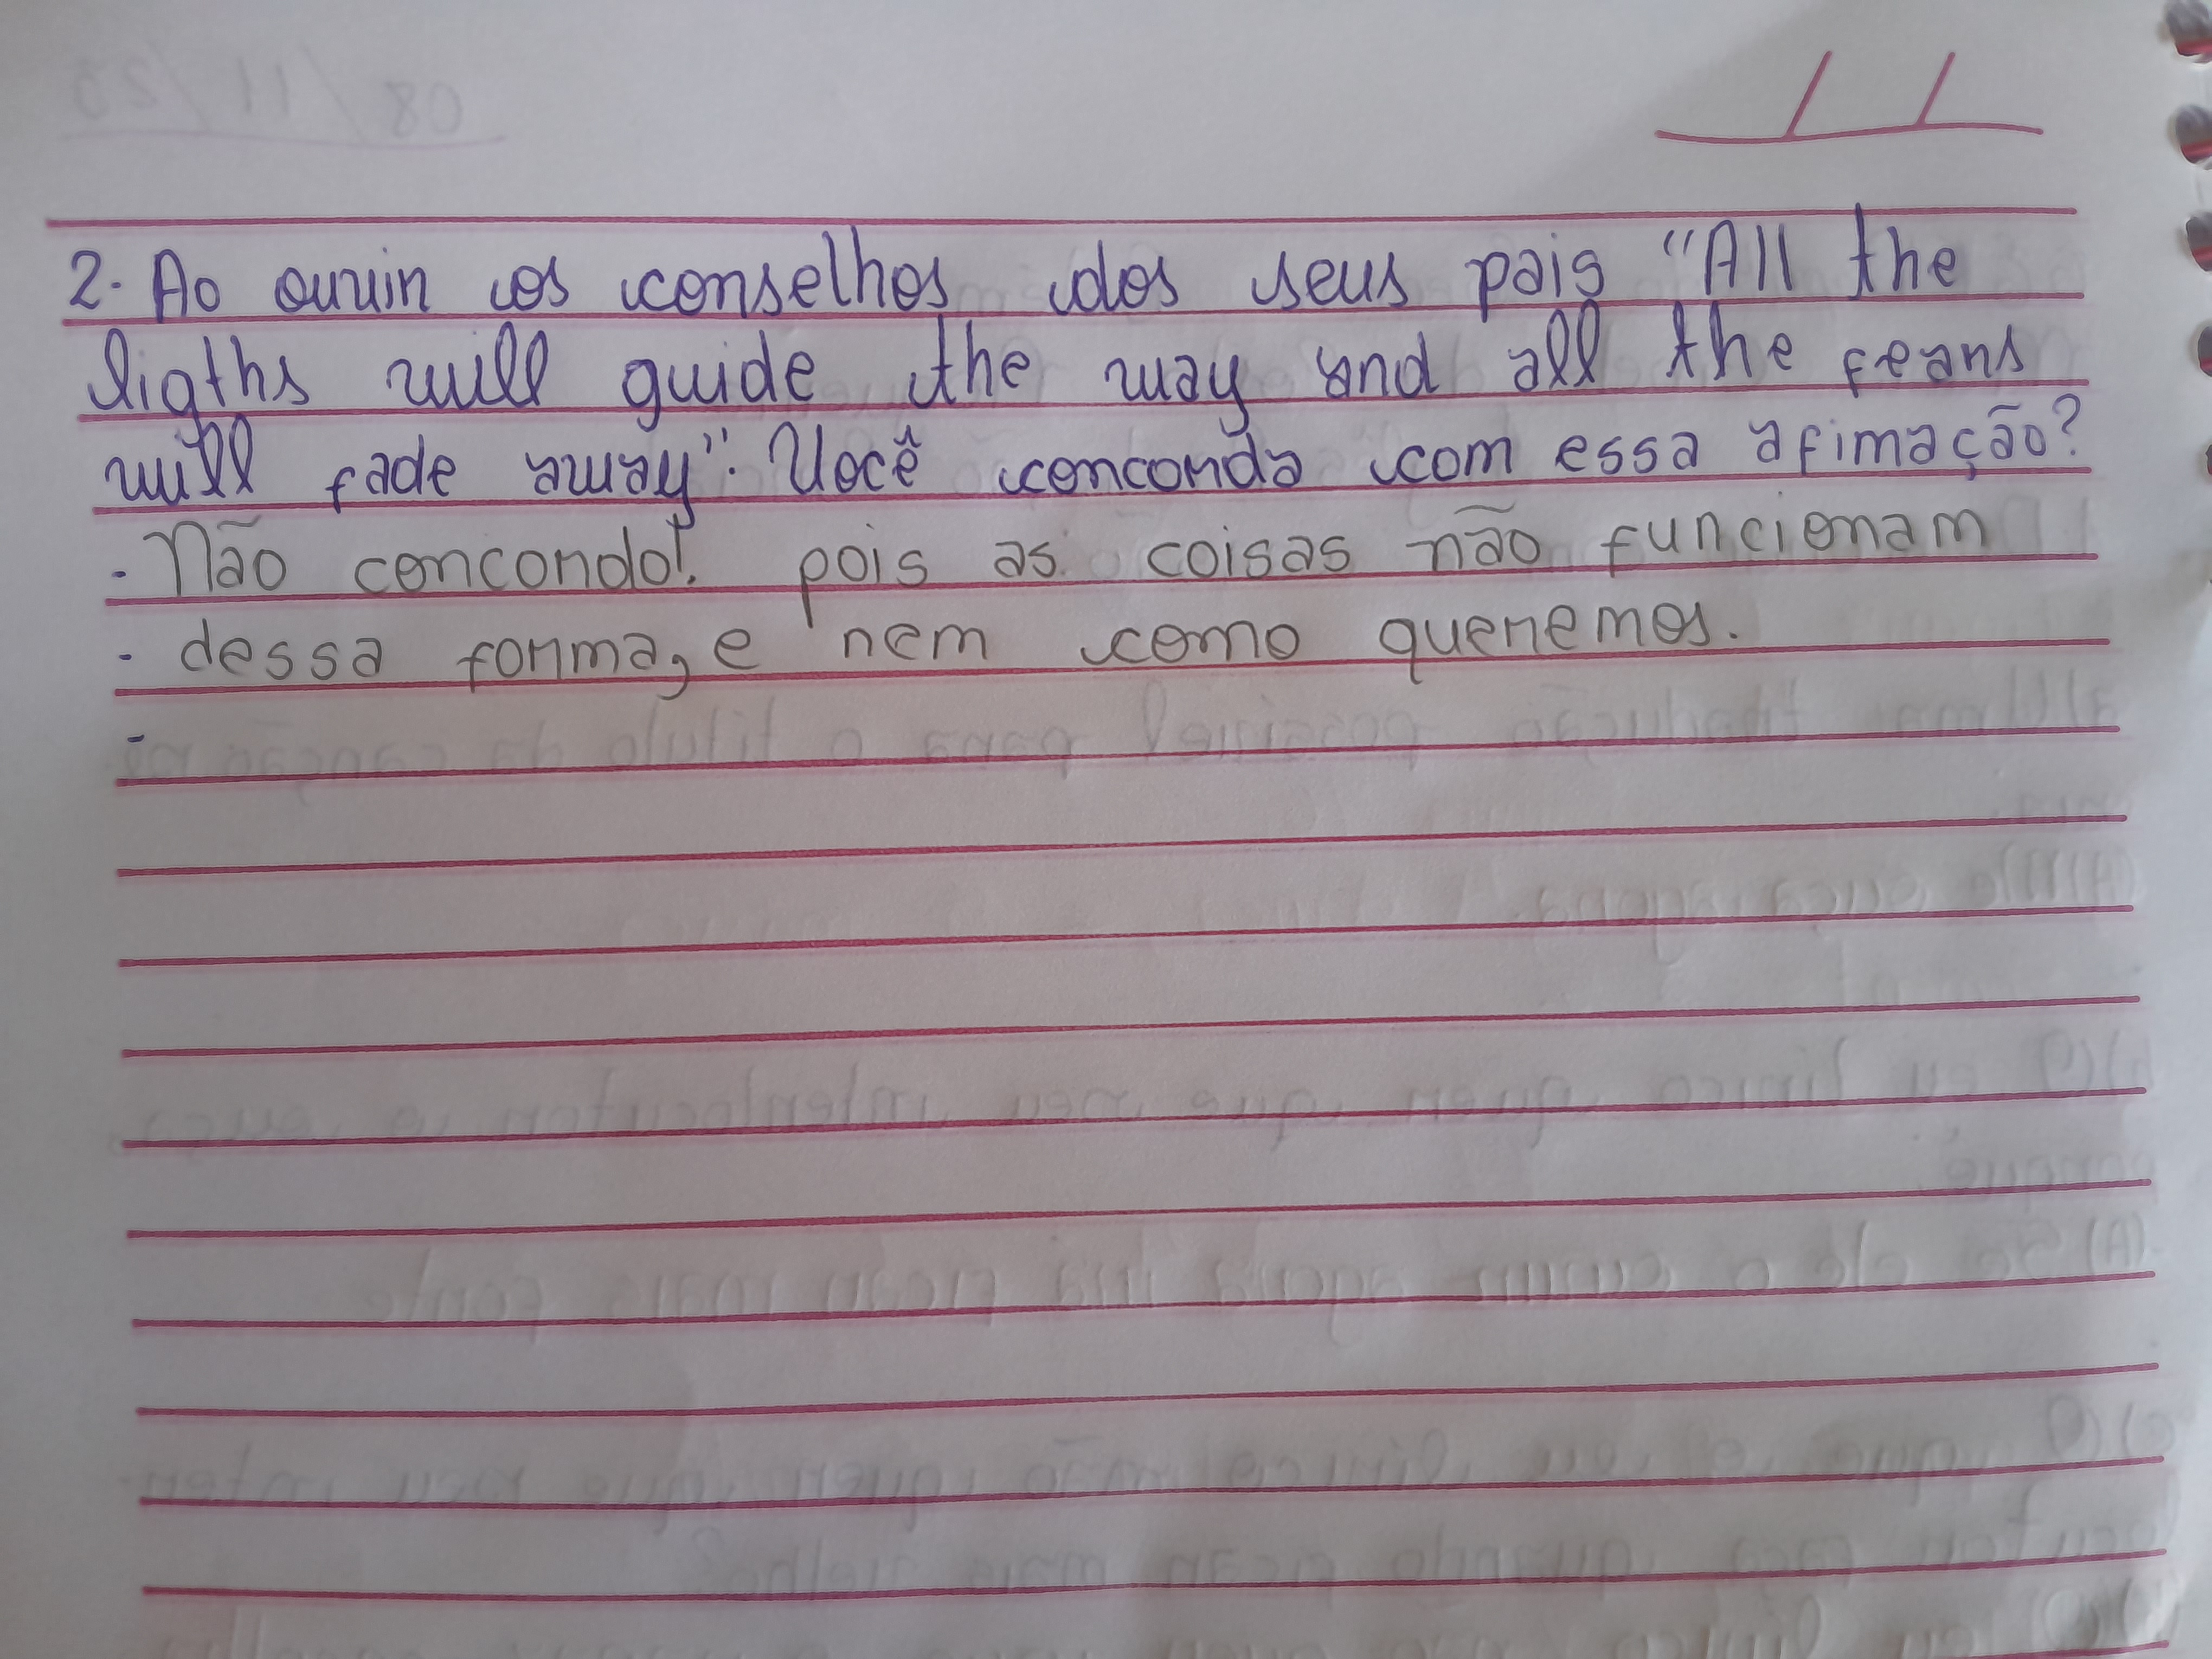 2. Ao ouvir os conselhos dos seus pais "All the
ligths will guide the way and all the fears
will fade away". Você concorda com essa afimação?
. Não concordo! pois as coisas não funcionam
. dessa forma, e nem como queremos.